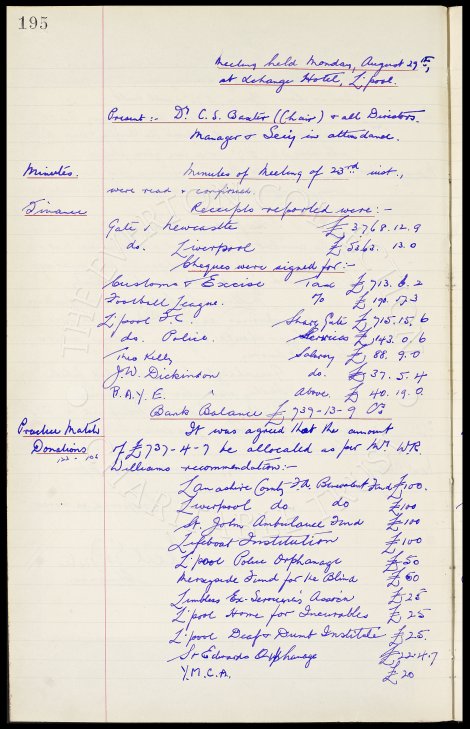 195
Meeting held Monday, August 29th,
at Exchange Hotel, L'pool.
Present:- Dr C. S. Baxter (Chair) & all Directors.
Manager & Secy in attendance.
Minutes. Minutes of Meeting of 23rd inst.,
were read & confirmed.
Finance Receipts reported were:-
Gate v. Newcastle £3768.12.9
do. Liverpool £5363. 13.0
Cheques were signed for:-
Customs & Excise Tax £713. 6. 2
Football League. % £190. 17.3
L'pool F.C. Share Gate £715.15.6
do. Police. Services £143. 0/6
Theo Kelly Salary £88. 9.0
J.W. Dickinson do. £37. 5.4
P.A.Y.E. Above. £40. 19.0
Bank Balance £739-13-9 O/D
Practice Match It was agreed that the amount
Donations of £737-4-7 be allocated as per Mr. W.R.
Williams recommendation:-
Lancashire County F.A. Benevolent Fund £100.
Liverpool do. do £100
St. Johns Ambulance Fund £100
Lifeboat Institution £100
L'pool Police Orphanage £50
Merseyside Fund for the Blind £60
Limbless Ex-Servicemen's Assocn £25
L'pool Home for Incurables £25
L'pool Deaf & Dumb Institute £25.
St Edwards Orphanage £22.4.7
Y.M.C.A. £20